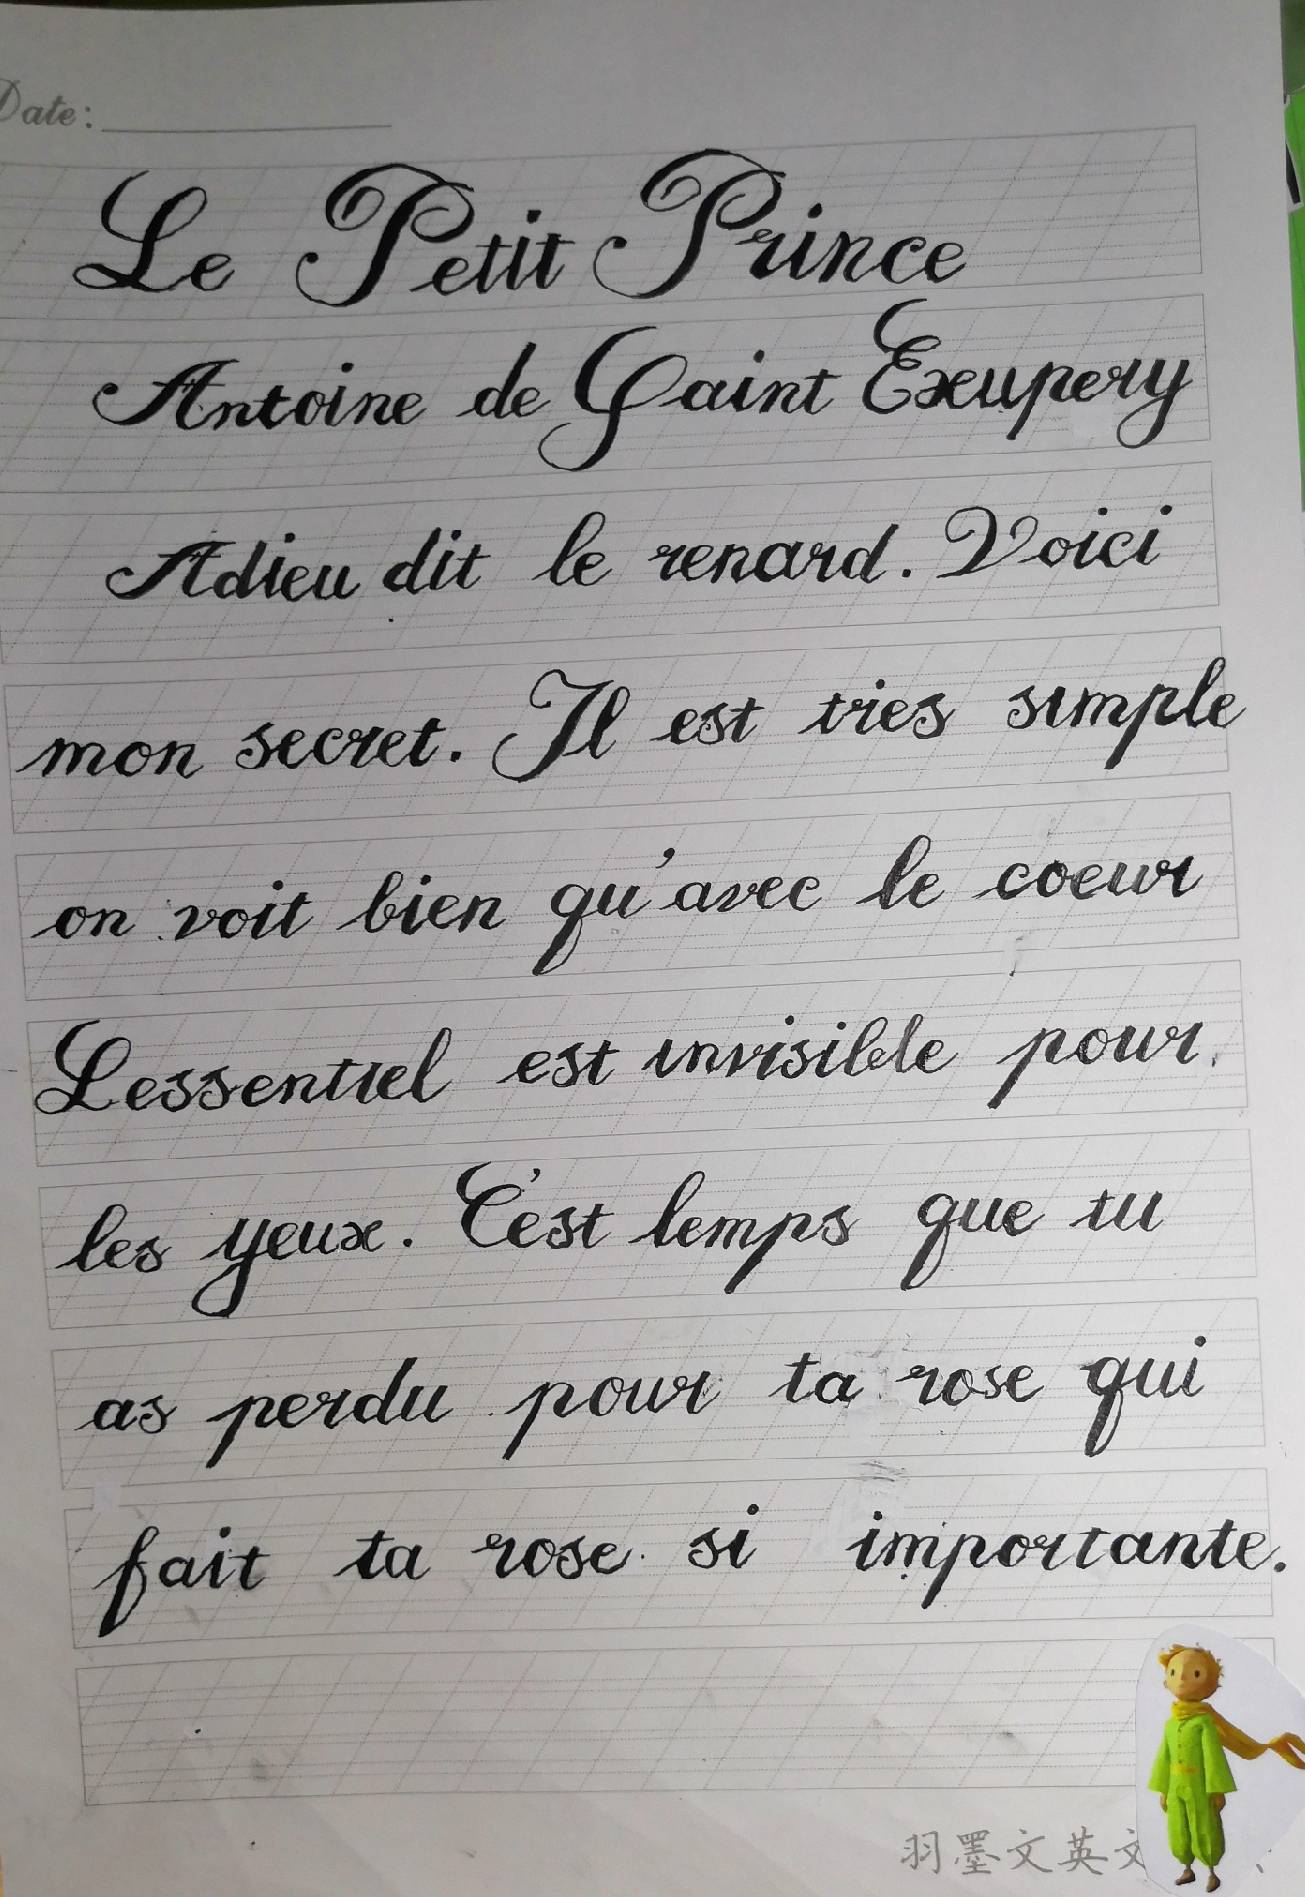 Date:
Le Petit Prince
Antoine de Saint Exeupery
Adieu dit le renard. Voici
mon secret. Il est tries simple
on voit bien qu'avec le coeur
Lessentiel est invisible pour.
les yeux. C'est lemps que tu
as perdu pour ta rose qui
fait ta rose si importante.
羽墨文英文